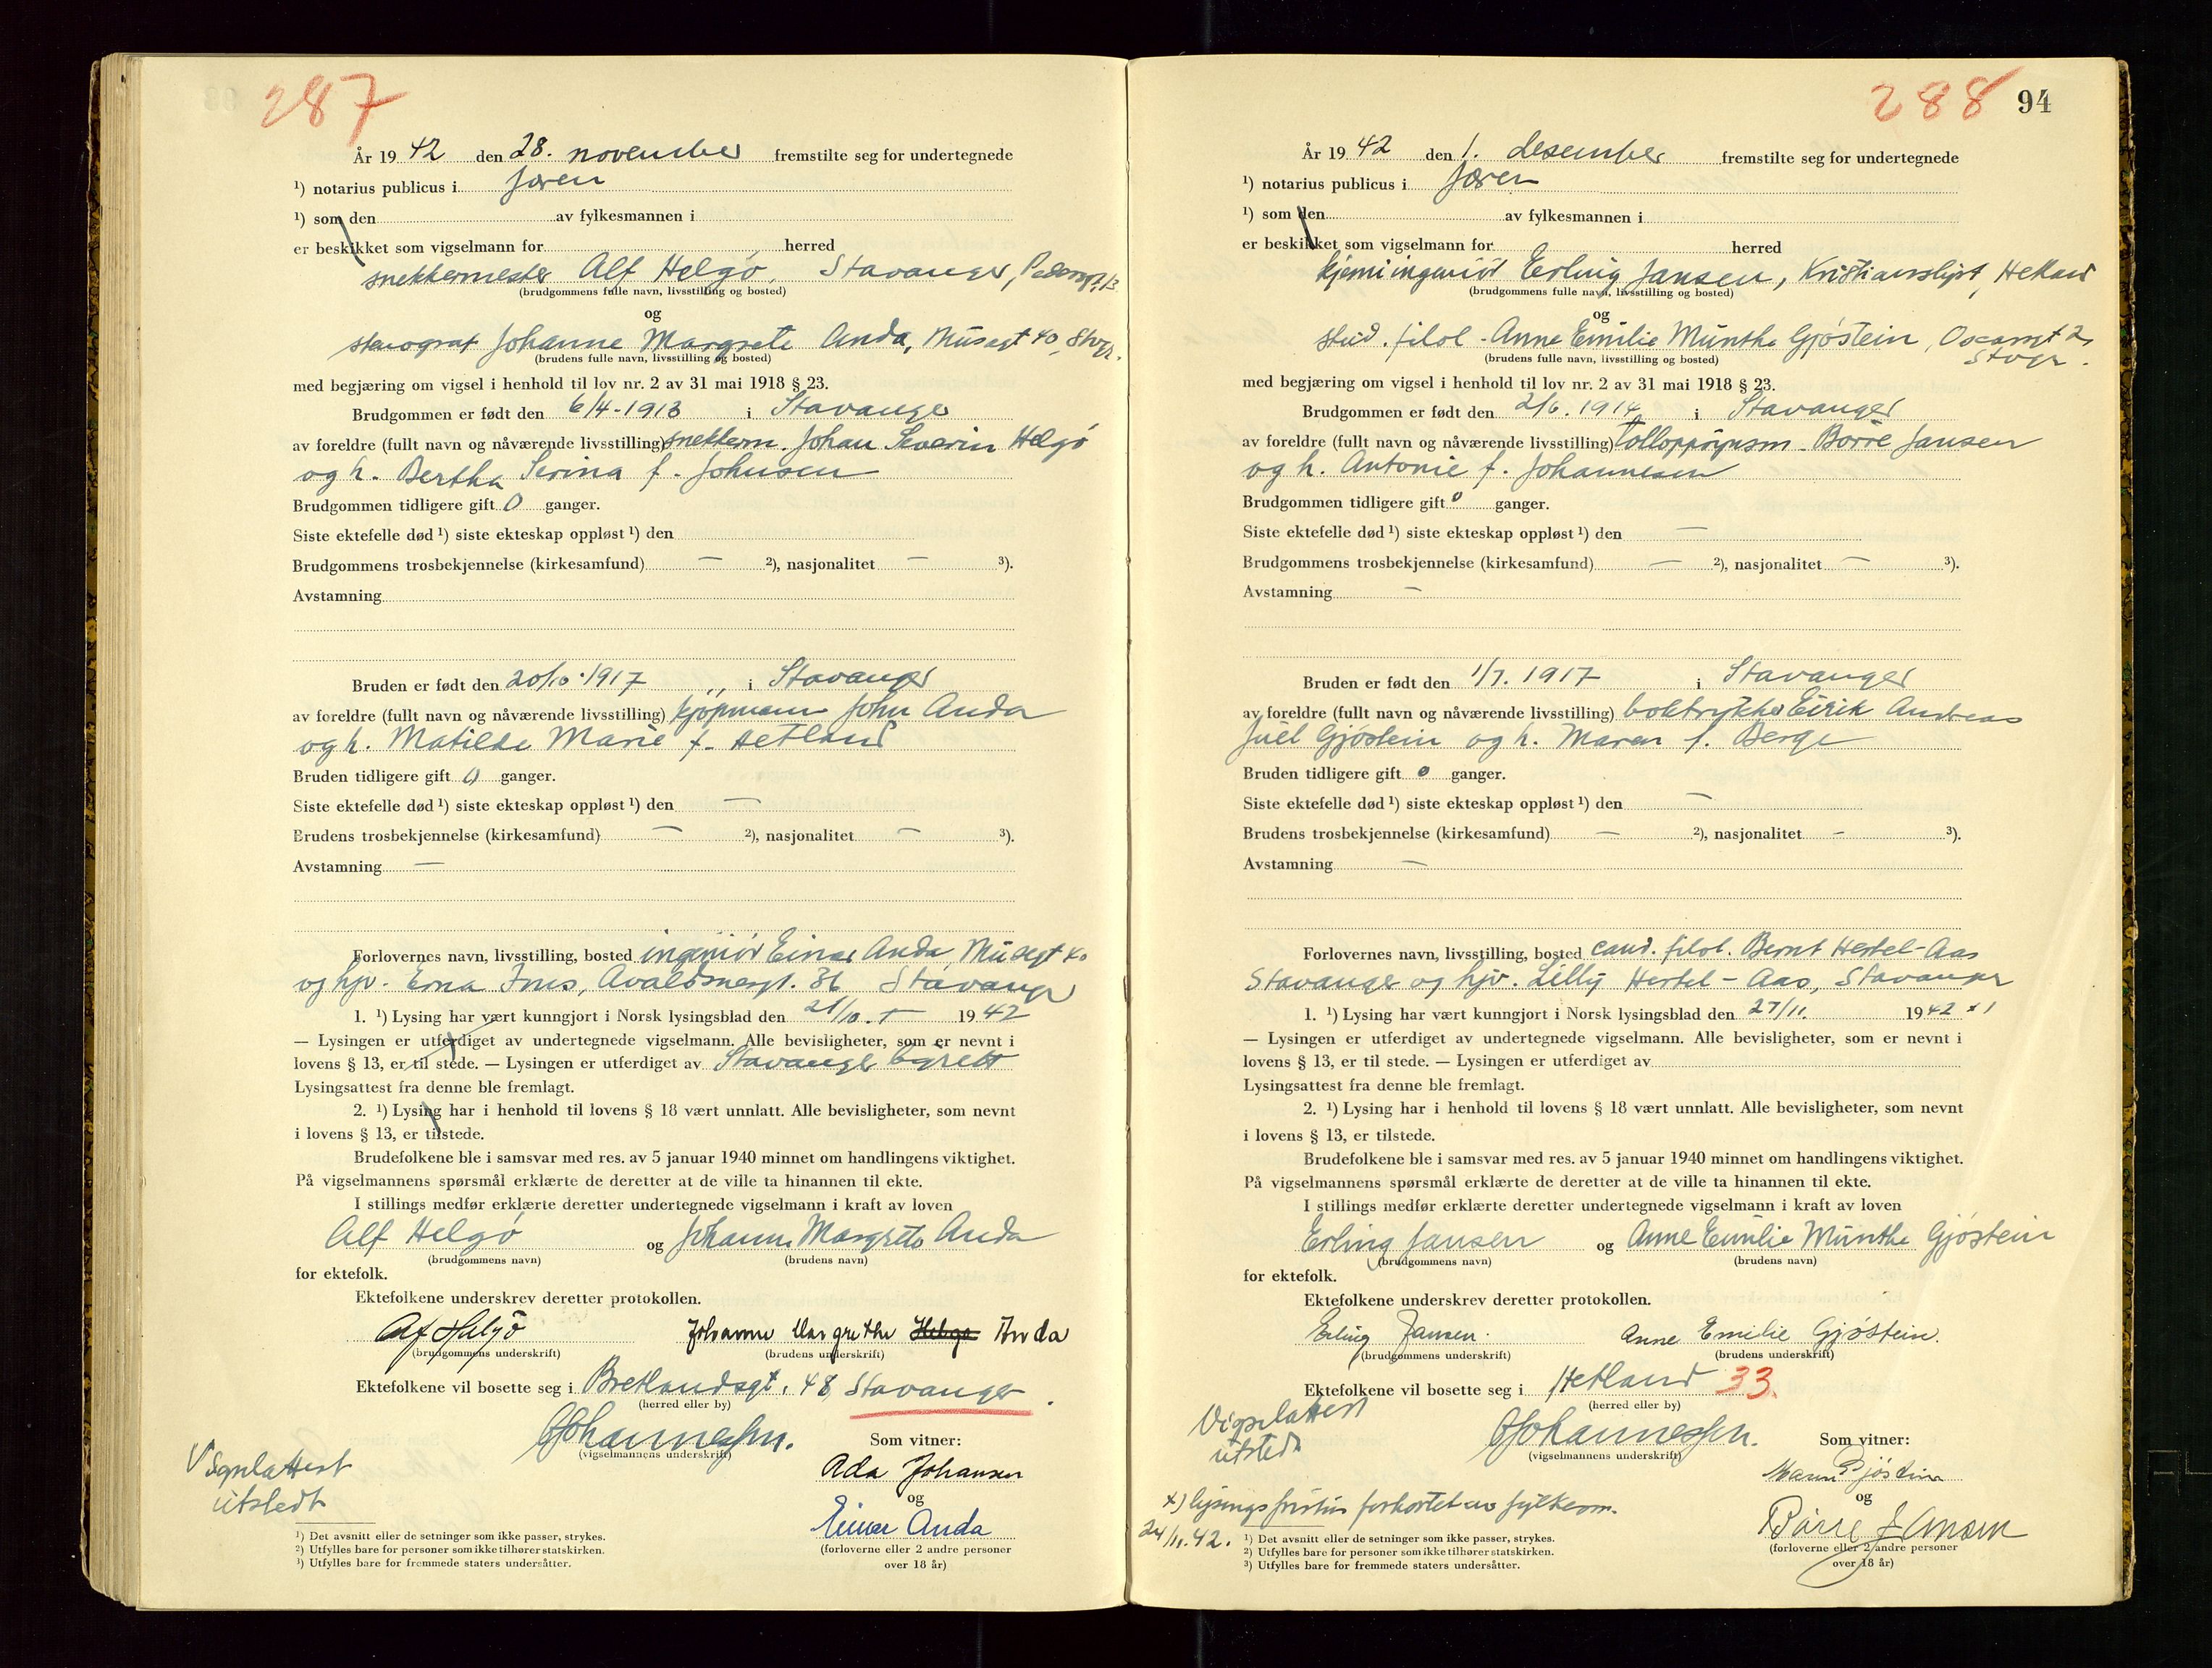 287
År 1942 den 28. november fremstilte seg for undertegnede
¹) notarius publicus i Jæren
¹) som den av fylkesmannen i
er beskikket som vigselmann for herred
snekkermester Alf Helgø, Stavanger, Pedersgt. 13
(brudgommens fulle navn, livsstilling og bosted)
og
stenograf Johanne Margrete Anda, Musegt 40, Stvgr.
(brudens fulle navn, livsstilling og bosted)
med begjæring om vigsel i henhold til lov nr. 2 av 31 mai 1918 § 23.
Brudgommen er født den 6/4-1913 i Stavanger
av foreldre (fullt navn og nåværende livsstilling) snekkerm. Johan Severin Helgø
og h. Bertha Serina f. Johnsen
Brudgommen tidligere gift 0 ganger.
Siste ektefelle død ¹) siste ekteskap oppløst ¹) den
Brudgommens trosbekjennelse (kirkesamfund) — ²), nasjonalitet — ³).
Avstamning
Bruden er født den 20/10.1917 ,, i Stavanger
av foreldre (fullt navn og nåværende livsstilling) kjøpmann John Anda
og h. Matilde Marie f. Hetland
Bruden tidligere gift 0 ganger.
Siste ektefelle død ¹) siste ekteskap oppløst ¹) den —
Brudens trosbekjennelse (kirkesamfund) — ²), nasjonalitet — ³).
Avstamning —
Forlovernes navn, livsstilling, bosted ingeniør Einar Anda, Musegt 40
og hjv. Erna Avaldsnesgt. 36 Stavanger
1. ¹) Lysing har vært kunngjort i Norsk lysingsblad den 21/10. 1942
— Lysingen er utferdiget av undertegnede vigselmann. Alle bevisligheter, som er nevnt i
lovens § 13, er til stede. — Lysingen er utferdiget av Stavanger byrett
Lysingsattest fra denne ble fremlagt.
2. ¹) Lysing har i henhold til lovens § 18 vært unnlatt. Alle bevisligheter, som nevnt
i lovens § 13, er tilstede.
Brudefolkene ble i samsvar med res. av 5 januar 1940 minnet om handlingens viktighet.
På vigselmannens spørsmål erklærte de deretter at de ville ta hinannen til ekte.
I stillings medfør erklærte deretter undertegnede vigselmann i kraft av loven
Alf Helgø og Johanne Margrete Anda
(brudgommens navn) (brudens navn)
for ektefolk.
Ektefolkene underskrev deretter protokollen.
Alf Helgø Johanne Margrethe Helgø Anda
(brudgommens underskrift) (brudens underskrift)
Ektefolkene vil bosette seg i Bretlandsgt. 48 Stavanger.
(herred eller by)
Johannessen.
(vigselmannens underskrift)
Vigselattest
utstedt
Som vitner:
Ada Johansen
og
Einar Anda
(forloverne eller 2 andre personer
over 18 år)
¹) Det avsnitt eller de setninger som ikke passer, strykes.
²) Utfylles bare for personer som ikke tilhører statskirken.
³) Utfylles bare for fremmede staters undersåtter.
288 94
År 1942 den 1. desember fremstilte seg for undertegnede
¹) notarius publicus i Jæren
¹) som den av fylkesmannen i
er beskikket som vigselmann for herred
kjemiingeniør Erling Jansen, Kristianslyst, Hetland
(brudgommens fulle navn, livsstilling og bosted)
og
stud. filol. Anne Emilie Munthe Gjøstein, Oscarsgt 2,
Stvgr.
(brudens fulle navn, livsstilling og bosted)
med begjæring om vigsel i henhold til lov nr. 2 av 31 mai 1918 § 23.
Brudgommen er født den 2/6. 1914 i Stavanger
av foreldre (fullt navn og nåværende livsstilling) Tolloppsynsm. Børre Jansen
og h. Antonie f. Johannesen
Brudgommen tidligere gift 0 ganger.
Siste ektefelle død ¹) siste ekteskap oppløst ¹) den —
Brudgommens trosbekjennelse (kirkesamfund) — ²), nasjonalitet — ³).
Avstamning —
Bruden er født den 1/7. 1917 i Stavanger
av foreldre (fullt navn og nåværende livsstilling) boktrykker Eirik Andreas
Juel Gjøstein og h. Maren f. Berge
Bruden tidligere gift 0 ganger.
Siste ektefelle død ¹) siste ekteskap oppløst ¹) den —
Brudens trosbekjennelse (kirkesamfund) — ²), nasjonalitet — ³).
Avstamning —
Forlovernes navn, livsstilling, bosted cand. filol. Bernt Hertel-Aas
Stavanger og hjv. Lilly Hertel-Aas, Stavanger
1. ¹) Lysing har vært kunngjort i Norsk lysingsblad den 27/11. 1942 x)
— Lysingen er utferdiget av undertegnede vigselmann. Alle bevisligheter, som er nevnt i
lovens § 13, er til stede. — Lysingen er utferdiget av
Lysingsattest fra denne ble fremlagt.
2. ¹) Lysing har i henhold til lovens § 18 vært unnlatt. Alle bevisligheter, som nevnt
i lovens § 13, er tilstede.
Brudefolkene ble i samsvar med res. av 5 januar 1940 minnet om handlingens viktighet.
På vigselmannens spørsmål erklærte de deretter at de ville ta hinannen til ekte.
I stillings medfør erklærte deretter undertegnede vigselmann i kraft av loven
Erling Jansen og Anne Emilie Munthe Gjøstein
(brudgommens navn) (brudens navn)
for ektefolk.
Ektefolkene underskrev deretter protokollen.
Erling Jansen. Anne Emilie Gjøstein.
(brudgommens underskrift) (brudens underskrift)
Ektefolkene vil bosette seg i Hetland 33.
(herred eller by)
Vigselattest
utstedt
Johannessen.
(vigselmannens underskrift)
Som vitner:
Maren Gjøstein
og
Børre Jansen
(forloverne eller 2 andre personer
over 18 år)
x) lysingsfristen forkortet av fylkesm.
24/11.42.
¹) Det avsnitt eller de setninger som ikke passer, strykes.
²) Utfylles bare for personer som ikke tilhører statskirken.
³) Utfylles bare for fremmede staters undersåtter.